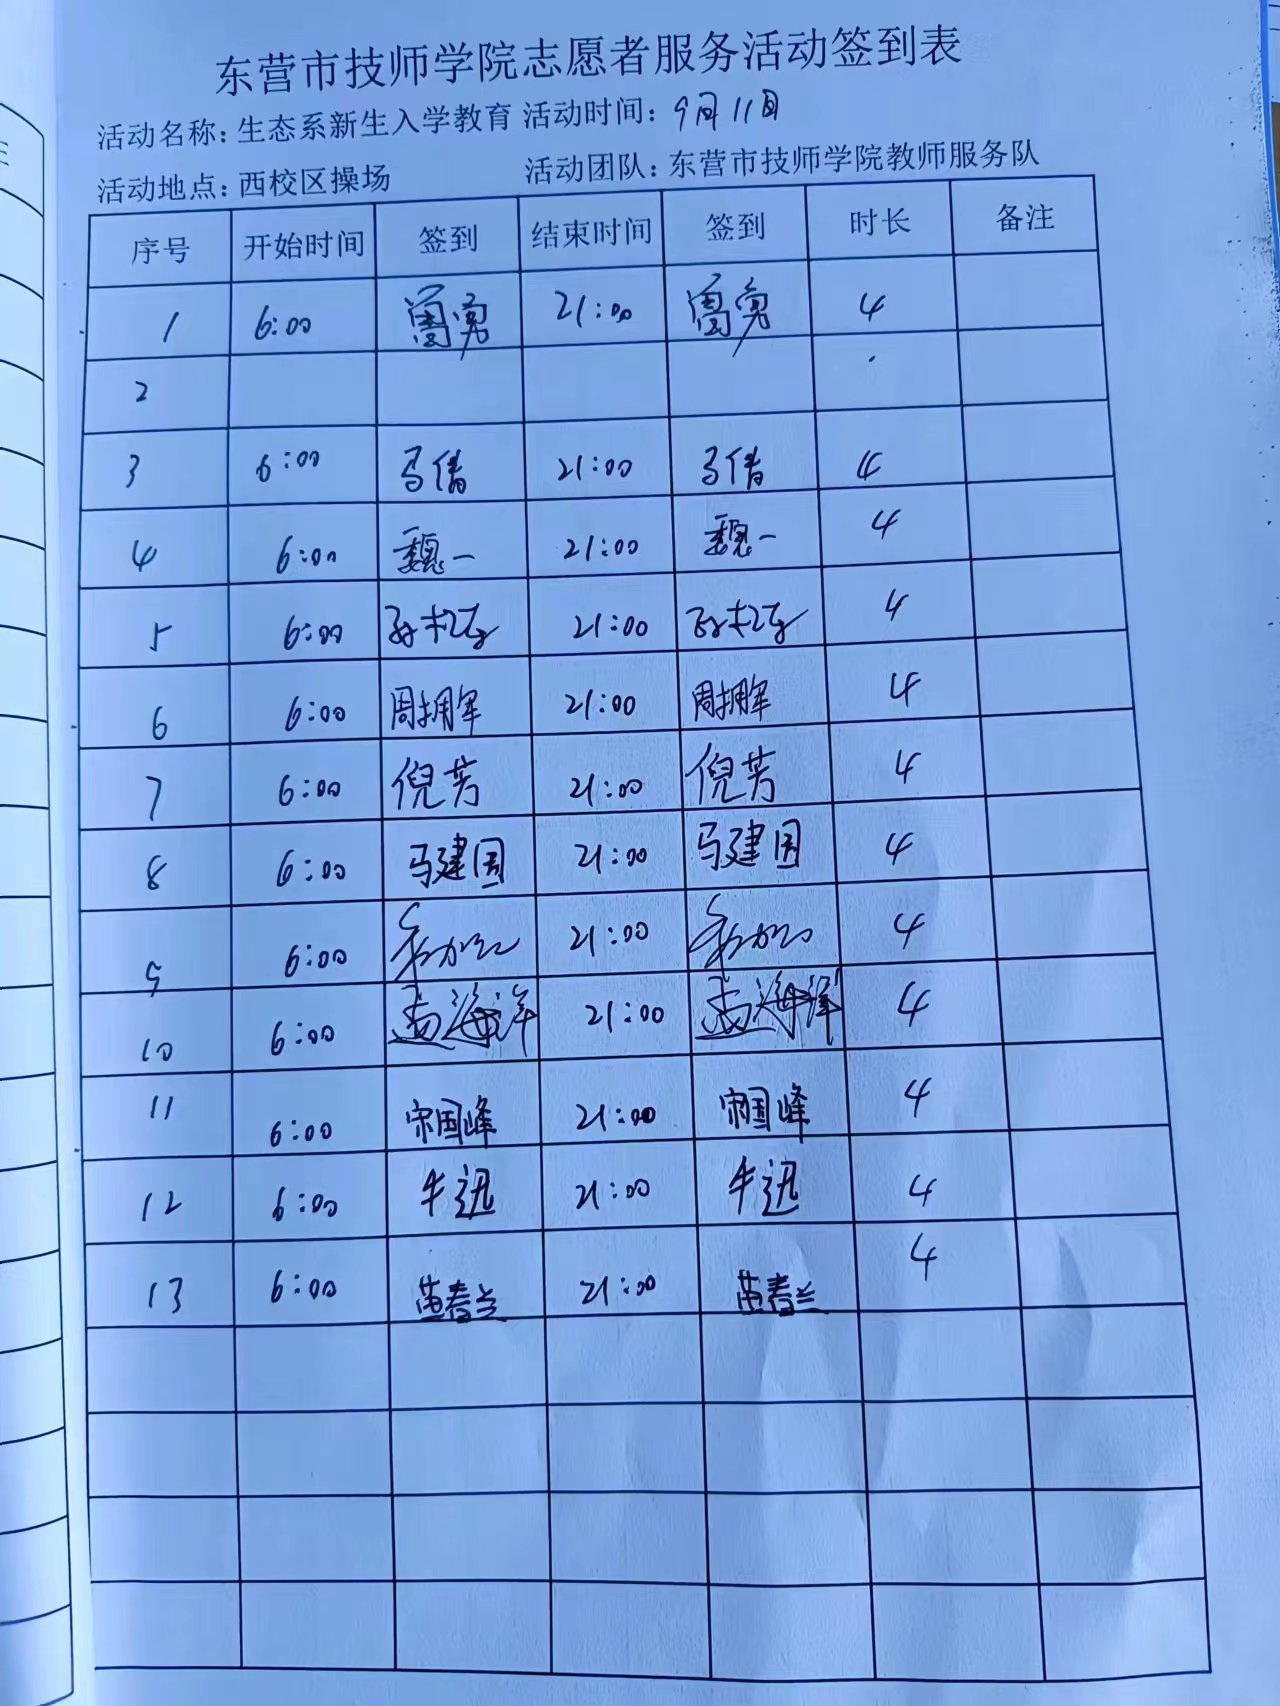 东营市技师学院志愿者服务活动签到表
活动名称：生态系新生入学教育 活动时间：9月11日
活动地点：西校区操场 活动团队：东营市技师学院教师服务队
序号 开始时间 签到 结束时间 签到 时长 备注
1 6:00 勇 21:00 勇 4
2
3 6:00 马倩 21:00 马倩 4
4 6:00 魏一 21:00 魏一 4
5 6:00 21:00 4
6 6:00 周拥军 21:00 周拥军 4
7 6:00 倪芳 21:00 倪芳 4
8 6:00 马建国 21:00 马建国 4
9 6:00 21:00 4
10 6:00 海洋 21:00 海洋 4
11 6:00 宋国峰 21:00 宋国峰 4
12 6:00 牛迅 21:00 牛迅 4
13 6:00 苗春兰 21:00 苗春兰 4